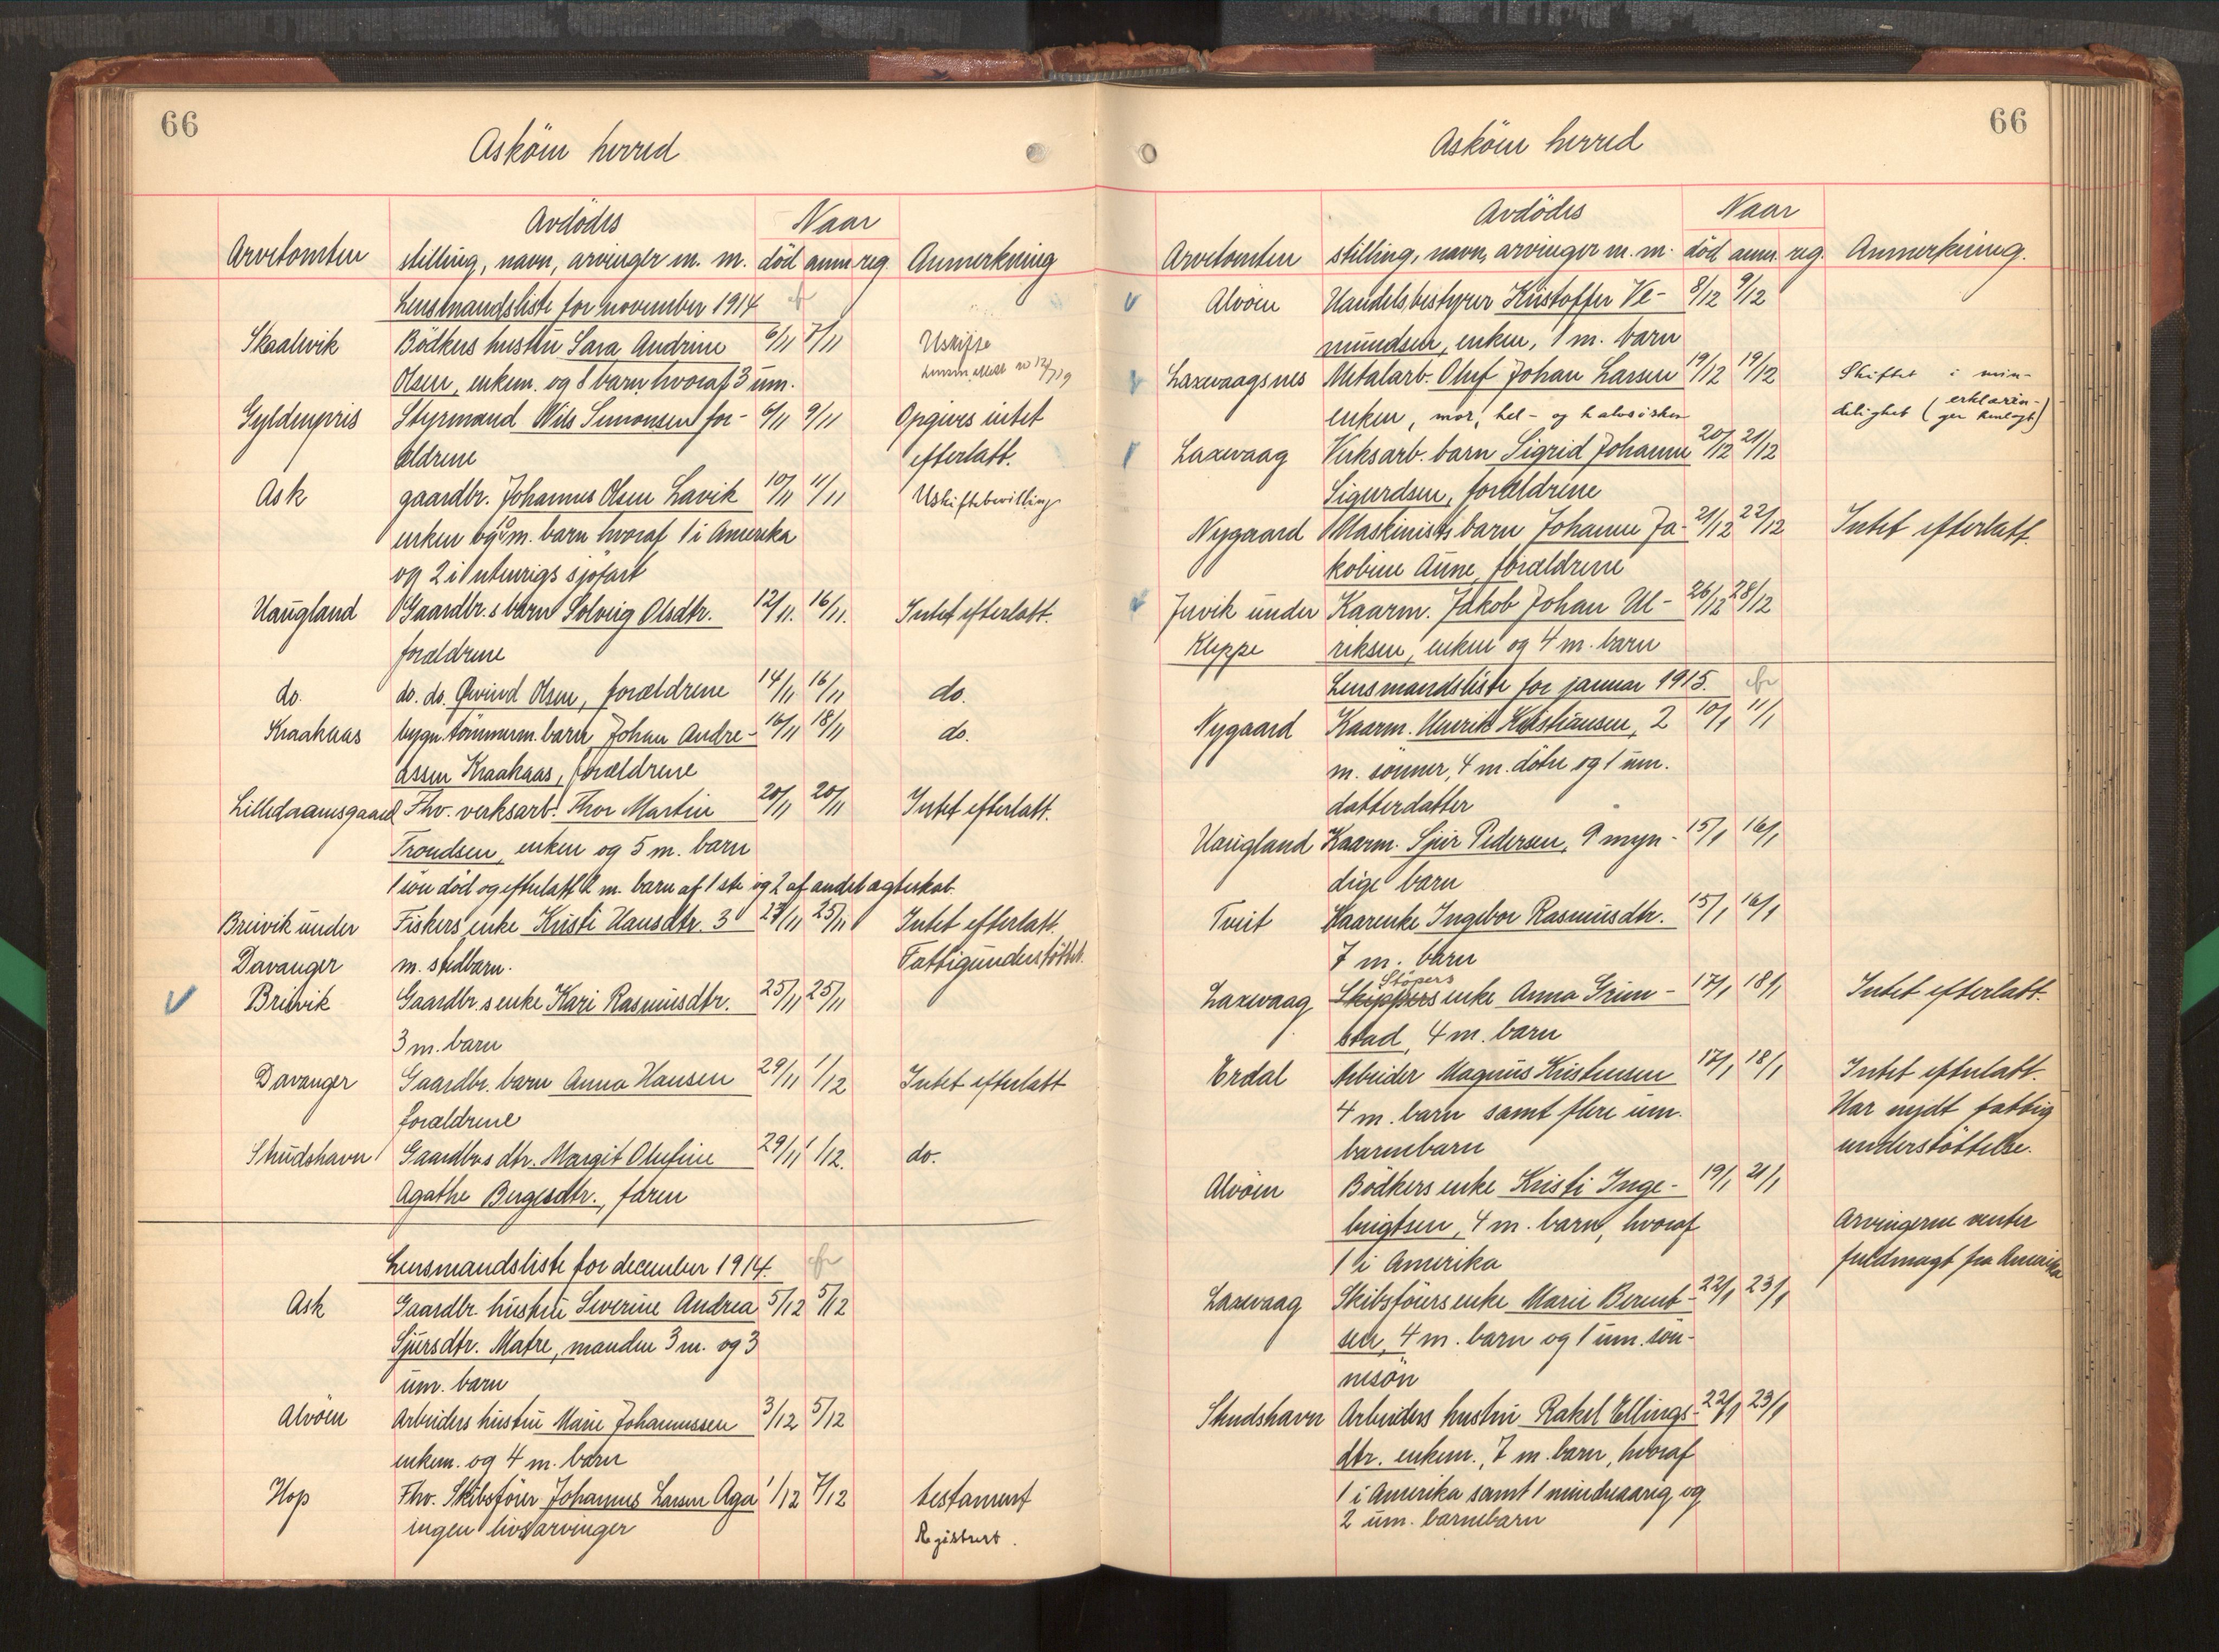 66
Asköen herred
Avdödes Naar
Arvetomten stilling, navn, arvinger m. m. död anm reg. Anmerkning
Lensmandsliste for november 1914
Skaalevik Bödkers hustru Sara Andrine 6/11 7/11 Uskifte
Olsen, enkem. og 8 barn hvoraf 3 um.
Gyldenpris Styrmand Nils Simonsen for- 6/11 9/11 Opgives intet
ældrene efterlatt.
Ask gaardbr. Johannes Olsen Lavik 10/11 11/11 Uskiftebevilling
enken og 10 m. barn hvoraf 1 i Amerika
og 2 i utenrigs sjöfart
Haugland Gaardbr.s barn Solveig Olsdtr. 12/11. 16/11. Intet efterlatt.
forældrene
do. do. do. Øivind Olsen, forældrene 14/11 16/11 do.
Kraakaas bygn.tömmerm. barn Johan Andre- 16/11 18/11 do.
assen Kraakaas, forældrene
Lilledamsgaard Fhv. verksarb. Thor Martin 20/11 20/11 Intet efterlatt.
Trondsen, enken og 5 m. barn
1 sön död og efterlatt 2 m. barn af 1ste og 2 af andet ægteskab
Breivik under Fiskers enke Kristi Hansdtr. 3 23/11 25/11 Intet efterlatt.
Davanger m. stedbarn. Fattigunderstöttet.
Breivik Gaardbr.s enke Kari Rasmusdtr. 25/11 25/11
3 m. barn
Davanger Gaardbr. barn Anna Hansen 29/11 1/12 Intet efterlatt
forældrene
Strudshavn Gaardbrs dtr. Margit Olufine 29/11 1/12. do.
Agathe Bergesdtr., faren
Lensmandsliste for december 1914.
Ask Gaardbr. hustru Severine Andrea 5/12 5/12
Sjursdtr. Matre, manden 3 m. og 3
um. barn
Alvöen Arbeiders hustru Marie Johannessen 3/12 5/12
enkem. og 4 m. barn
Hop Fhv. Skibsförer Johannes Larsen Aga 1/12 7/12 testament
ingen livsarvinger Registrert.
66
Asköen herred
Avdödes Naar
Arvetomten stilling, navn, arvinger m. m. död anm. reg. Anmerkning.
Alvöen Handelsbestyrer Kristoffer Ve- 8/12 9/12
mundsen, enken, 1 m. barn
Laxevaagsnes Metalarb. Oluf Johan Larsen 19/12 19/12 Skiftet i min-
enken, mor, hel- og halvsösken delighet (erklærin-
ger henlagt)
Laxevaag Verksarb. barn Sigrid Johanne 20/12 21/12
Sigurdsen, forældrene
Nygaard Maskinists barn Johanne Ja- 21/12 22/12 Intet efterlatt.
kobine Aune, forældrene
Juvik under Kaarm. Jakob Johan Ul- 26/12 28/12
Kleppe riksen, enken og 4 m. barn
Lensmandsliste for januar 1915.
Nygaard Kaarm. Henrik Kristiansen, 2 10/1 11/1
m. sönner, 4 m. dötre og 1 um.
datterdatter
Haugland Kaarm. Sjur Pedersen, 9 myn- 15/1 16/1
dige barn
Tveit Kaarenke Ingebor Rasmusdtr. 15/1 16/1
7 m. barn
Stöpers
Laxevaag Skippers enke Anna Grim- 17/1 18/1 Intet efterlatt.
stad, 4 m. barn
Erdal Arbeider Magnus Kristensen 17/1 18/1 Intet efterlatt.
4 m. barn samt flere um. Har nydt fattig
barnebarn understöttelse.
Alvöen Bödkers enke Kristi Inge- 19/1 21/1
brigtsen, 4 m. barn, hvoraf Arvingerne venter
1 i Amerika fuldmagt fra Amerika
Laxevaag Skibsförers enke Marie Berent- 22/1 23/1
sen, 4 m. barn og 1 um. sön-
nesön
Strudshavn Arbeiders hustru Rakel Ellings- 22/1 23/1
dtr. enkem., 7 m. barn, hvoraf
1 i Amerika samt 1 mindreaarig og
2 um. barnebarn